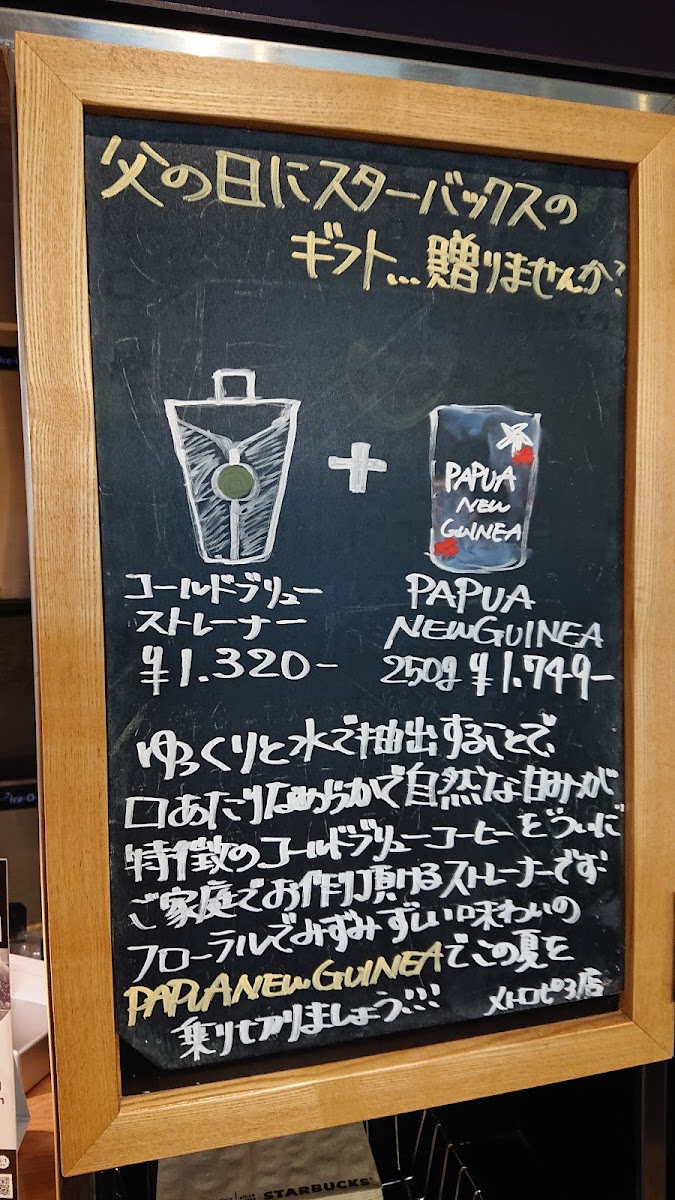 父の日にスターバックスの
ギフト...贈りませんか?
PAPUA
NEW
GUINEA
コールドブリュー
ストレーナー
¥1.320-
PAPUA
NEW GUINEA
250g ¥1.749-
ゆっくりと水で抽出することで、
口あたりなめらかで自然な甘みが
特徴のコールドブリューコーヒーをついに
ご家庭でお作り頂けるストレーナーです
フローラルでみずみずしい味わいの
PAPUA NEW GUINEAでこの夏を
乗り切りましょう!!!
メトロピア店
STARBUCKS